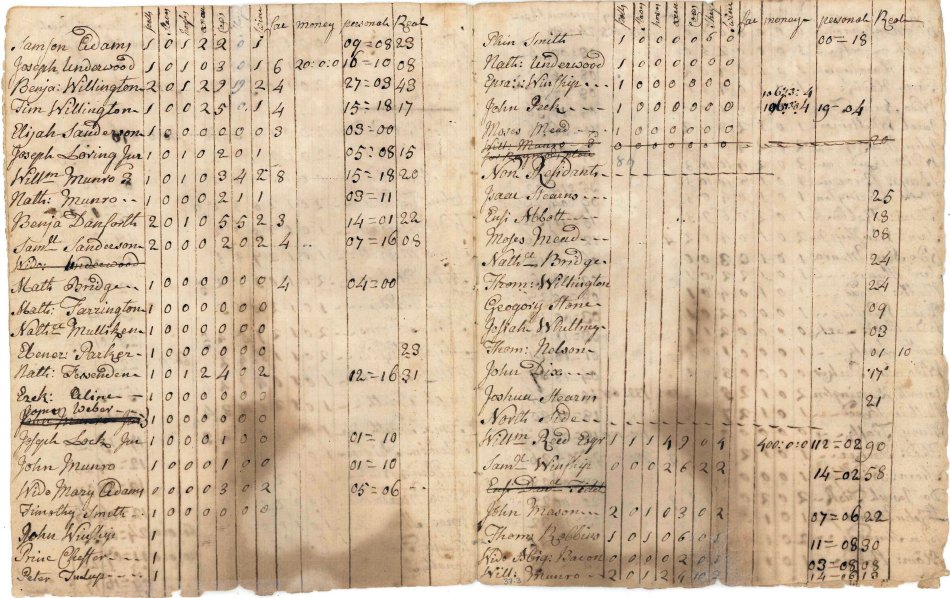 polls
far money personal Real
Samson Adams 1 0 1 2 2 0 1 09=08 23
Joseph Underwood 1 0 1 0 3 0 1 6 20:0:0 16=10 08
Benja: Willington 2 0 1 2 2 4 27=03 43
Tim Willington 1 0 0 2 5 0 1 4 15=18 17
Elijah Sanderson 1 0 0 0 0 0 0 3 03=00
Joseph Loring Jur 1 0 1 0 2 0 1 05=08 15
Willm Munro 3 1 0 1 0 3 4 2 8 15=18 20
Nath: Munro 1 0 0 0 2 1 1 03=11
Benja Danforth 2 0 1 0 5 5 2 3 14=01 22
Samll Sanderson 2 0 0 0 2 0 2 4 07=16 08
Wido: Underwood
Math Bridge 1 0 0 0 0 0 0 4 04=00
Math: Farrington 1 0 0 0 0 0 0
Nathll Mulliken 1 0 0 0 0 0 0
Ebener: Parker 1 0 0 0 0 0 0 23
Nath: Fessenden 1 0 1 2 4 0 2 12=16 31
1
Weber 1 0 0 0 0 0 0
Joseph Lock Jur 1 0 0 0 1 0 0 01=10
John Munro 1 0 0 0 1 0 0 01=10
Wido Mary Adams 0 0 0 0 3 0 2 05=06
Timothy Smith 1 0 0 0 0 0 0
John Winship 1
Prine Chester 1
Peter 1
polls
far money personal Real
Phin Smith 1 0 0 0 0 0 00=18
Nath: Underwood 1 0 0 0 0 0 0
Epra: Winship 1 0 0 0 0 0 0
John Peck 1 0 0 0 0 0 0 19=04
Moses Mead 1 0 0 0 0 0 0
Will: Munro 0 0 0 0 0 0 0 20
Non Residants
Isaac Stearns 25
Eusi Abbott 18
Moses Mead 08
Nathll Bridge 24
Thom: Willington 24
Geogory Stone 09
Josiah Whittney 03
Thom: Nelson 01 10
John Dix 17
Joshua Stearns 21
North Side
Willm Reed Esqr 1 1 1 4 9 0 4 400:0:0 112=02 90
Samll Winship 1 0 0 2 6 2 2 14=02 58
John Mason 2 0 1 0 3 0 2 07=06 22
Thom: Robbins 1 0 1 0 6 0 1 11=08 30
Wido Abig: Bacon 0 0 0 0 2 0 1 03=08 08
Will: Munro 2 0 1 2 4 10 3 14=